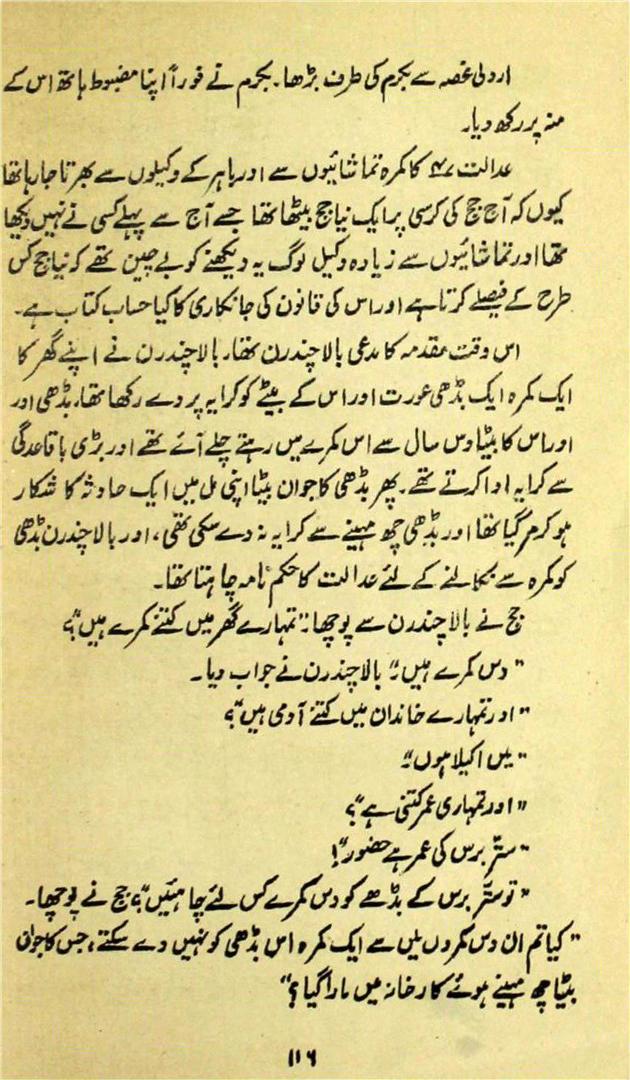 اردلی غصہ سے مجرم کی طرف بڑھا۔ مجرم نے فوراً اپنا مضبوط ہاتھ اس کے
منہ پر رکھ دیا۔
عدالت کا کمرہ تماشائیوں سے اور باہر کے وکیلوں سے بھرتا جا رہا تھا
کیوں کہ آج جج کی کرسی پر ایک نیا جج بیٹھا تھا جسے آج سے پہلے کسی نے نہیں دیکھا
تھا اور تماشائیوں سے زیادہ وکیل لوگ یہ دیکھنے کو بے چین تھے کہ نیا جج کس
طرح کے فیصلے کرتا ہے اور اس کی قانون کی جانکاری کا کیا حساب کتاب ہے۔
اس وقت مقدمہ کا مدعی بالاچندرن تھا۔ بالاچندرن نے اپنے گھر کا
ایک کمرہ ایک بڈھی عورت اور اس کے بیٹے کو کرایہ پر دے رکھا تھا۔ بڈھی اور
اور اس کا بیٹا دس سال سے اس کمرے میں رہتے چلے آئے تھے اور بڑی باقاعدگی
سے کرایہ ادا کرتے تھے۔ پھر بڈھی کا جوان بیٹا اپنی مل میں ایک حادثہ کا شکار
ہو کر مر گیا تھا اور بڈھی چھ مہینے سے کرایہ نہ دے سکی تھی، اور بالاچندرن بڈھی
کو کمرہ سے نکالنے کے لئے عدالت کا حکم نامہ چاہتا تھا۔
جج نے بالاچندرن سے پوچھا: "تمہارے گھر میں کتنے کمرے ہیں؟"
"دس کمرے ہیں۔" بالاچندرن نے جواب دیا۔
"اور تمہارے خاندان میں کتنے آدمی ہیں؟"
"میں اکیلا ہوں۔"
"اور تمہاری عمر کتنی ہے؟"
"ستّر برس کی عمر ہے حضور!"
"تو ستّر برس کے بڈھے کو دس کمرے کس لئے چاہئیں؟" جج نے پوچھا۔
"کیا تم ان دس کمروں میں سے ایک کمرہ اس بڈھی کو نہیں دے سکتے، جس کا جوان
بیٹا چھ مہینے ہوئے کارخانہ میں مارا گیا؟"
۱۱۶